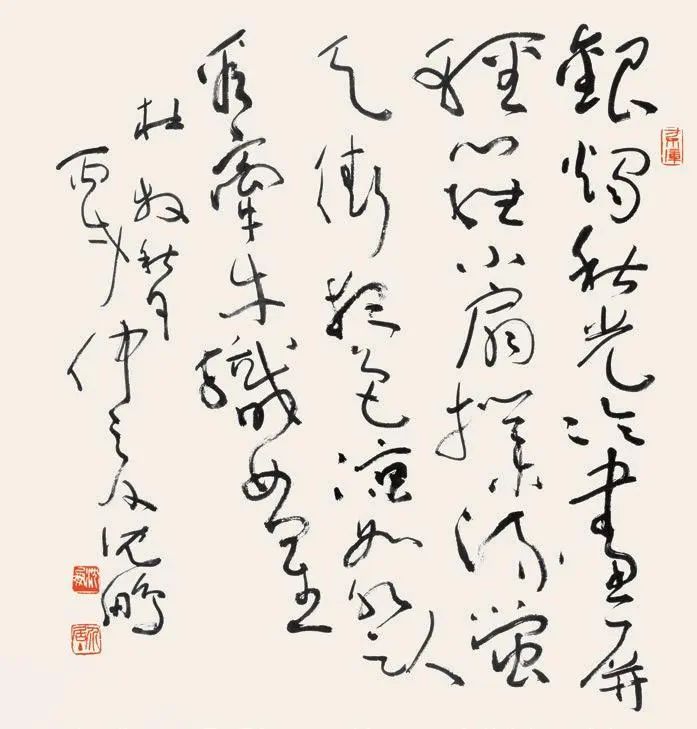 銀燭秋光冷畫屏
輕羅小扇撲流螢
天街夜色涼如水臥
看牽牛織女星
杜牧秋夕
丙戌仲沈鵬